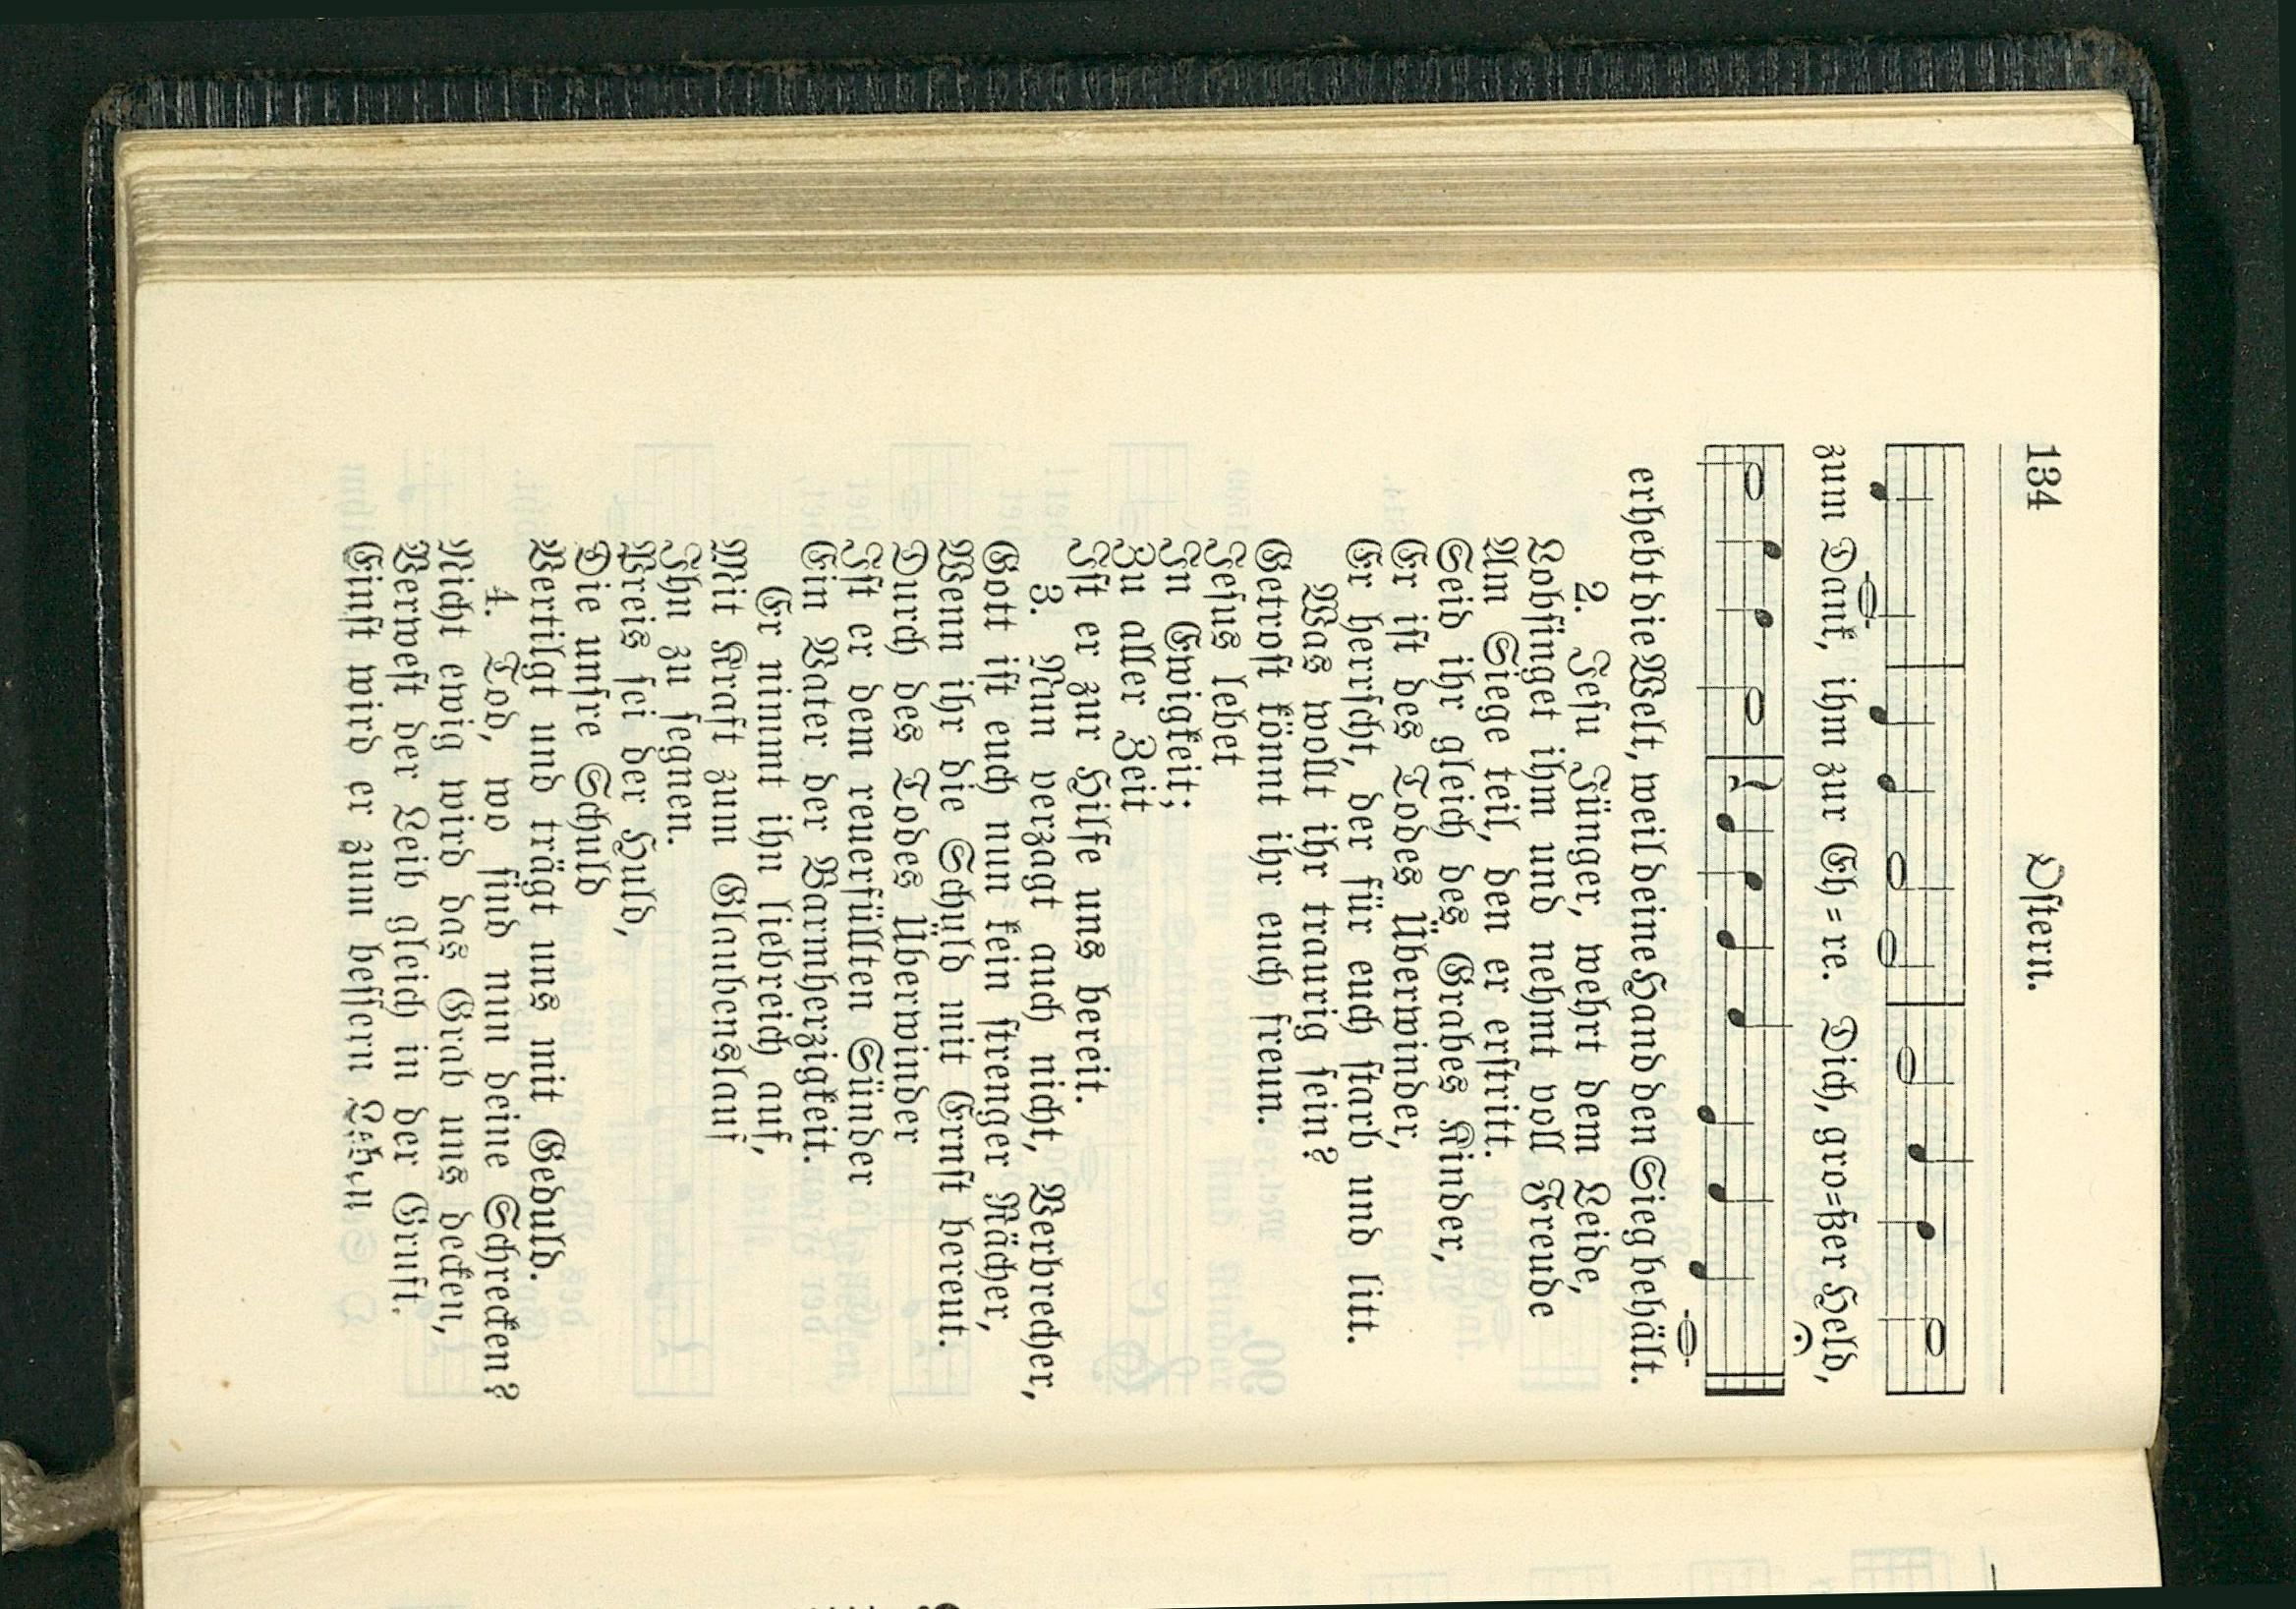 134
Ostern.
zum Dank, ihm zur Eh=re. Dich, gro=ßer Held,
erhebt die Welt, weil deine Hand den Sieg behält.
2. Jesu Jünger, wehrt dem Leide,
Lobsinget ihm und nehmt voll Freude
Am Siege teil, den er erstritt.
Seid ihr gleich des Grabes Kinder,
Er ist des Todes Überwinder,
Er herrscht, der für euch starb und litt.
Was wollt ihr traurig sein?
Getrost könnt ihr euch freun.
Jesus lebet
In Ewigkeit;
Zu aller Zeit
Ist er zur Hilfe uns bereit.
3. Nun verzagt auch nicht, Verbrecher,
Gott ist euch nun kein strenger Rächer,
Wenn ihr die Schuld mit Ernst bereut.
Durch des Todes Überwinder
Ist er dem reuerfüllten Sünder
Ein Vater der Barmherzigkeit.
Er nimmt ihn liebreich auf,
Mit Kraft zum Glaubenslauf
Ihn zu segnen.
Preis sei der Huld,
Die unsre Schuld
Vertilgt und trägt uns mit Geduld.
4. Tod, wo sind nun deine Schrecken?
Nicht ewig wird das Grab uns decken,
Verwest der Leib gleich in der Gruft.
Einst wird er zum bessern Leben